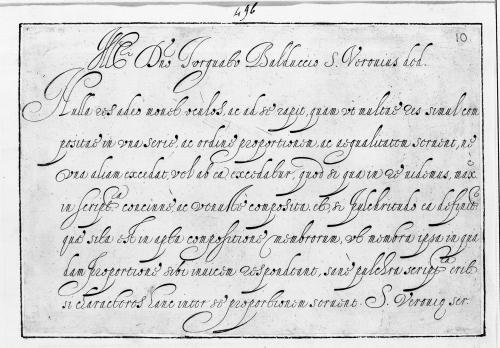 496
10
Ill.ri Dno Torquato Balduccio S. Veronius ded.
Nulla res adeo movet oculos, ac ad se rapit, quam vt multae res simul com
positae in vna serie, ac ordine proportionem, ac aequalitatem servent, ne
vna aliam excedat, vel ab ea excedatur, quod et qua in re videmus, max
in script.a concinne, ac venuste composita. et, si pulchritudo ea definit.r
quae sita est in apta compositione membrorum, vt membra ipsa in qua
dam proportione sibi invicem respondeant, sane pulchra script.a erit
si characteres hanc inter se proportionem servent. S. Veroniq ser.